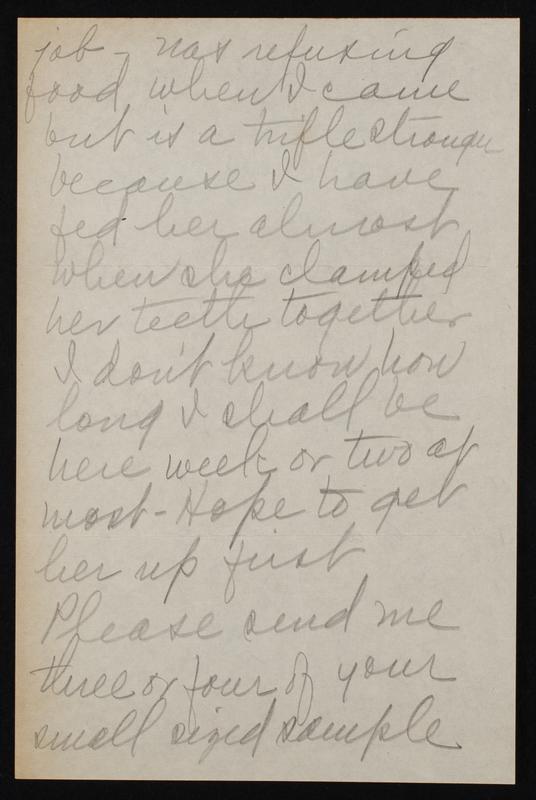 job - was refusing
food when I came
but is a trifle stronger
because I have
fed her almost
when she clamped
her teeth together
I don't know how
long I shall be
here week or two at
most - Hope to get
her up first
Please send me
three or four of your
small sized sample